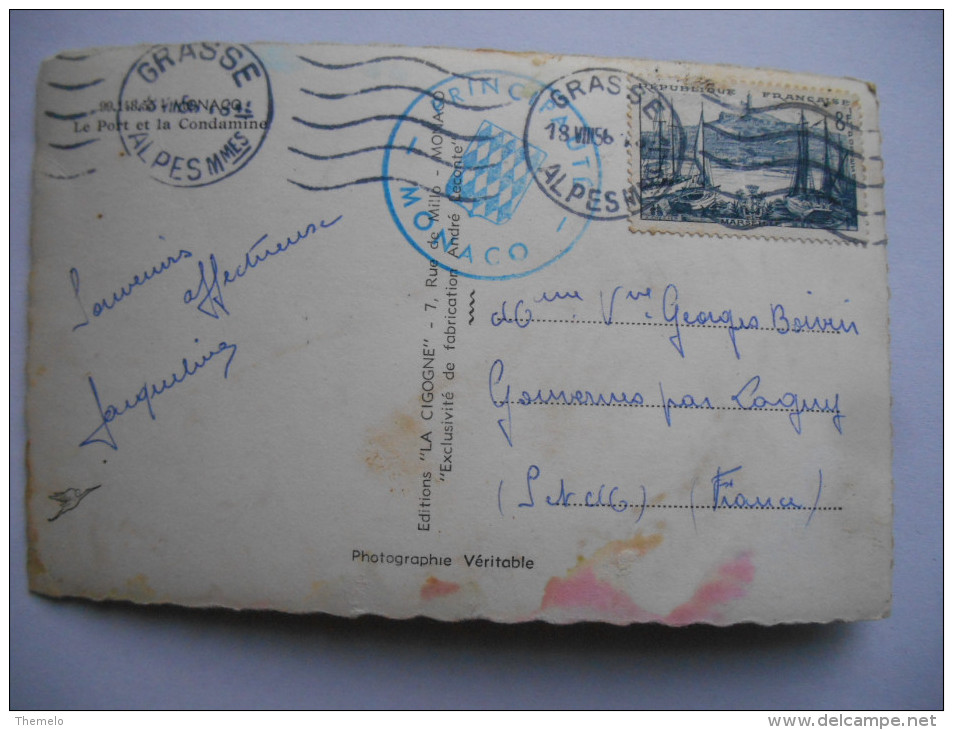 GRASSE
ALPES MMES
MONACO
Le Port et la Condamine
PRINCIPAUTE
MONACO
GRASSE
18 VIII 56
ALPES MMES
REPUBLIQUE FRANÇAISE
8F
MARSEILLE
Souvenirs
affectueux
Jacqueline
Editions "LA CIGOGNE" - 7, Rue de Millo - MONACO
"Exclusivité de fabrication André Leconte"
Mme Vve Georges Boivin
Gouvernes par Lagny
(S. et M)
(France)
Photographie Véritable
Themelo
www.delcampe.net